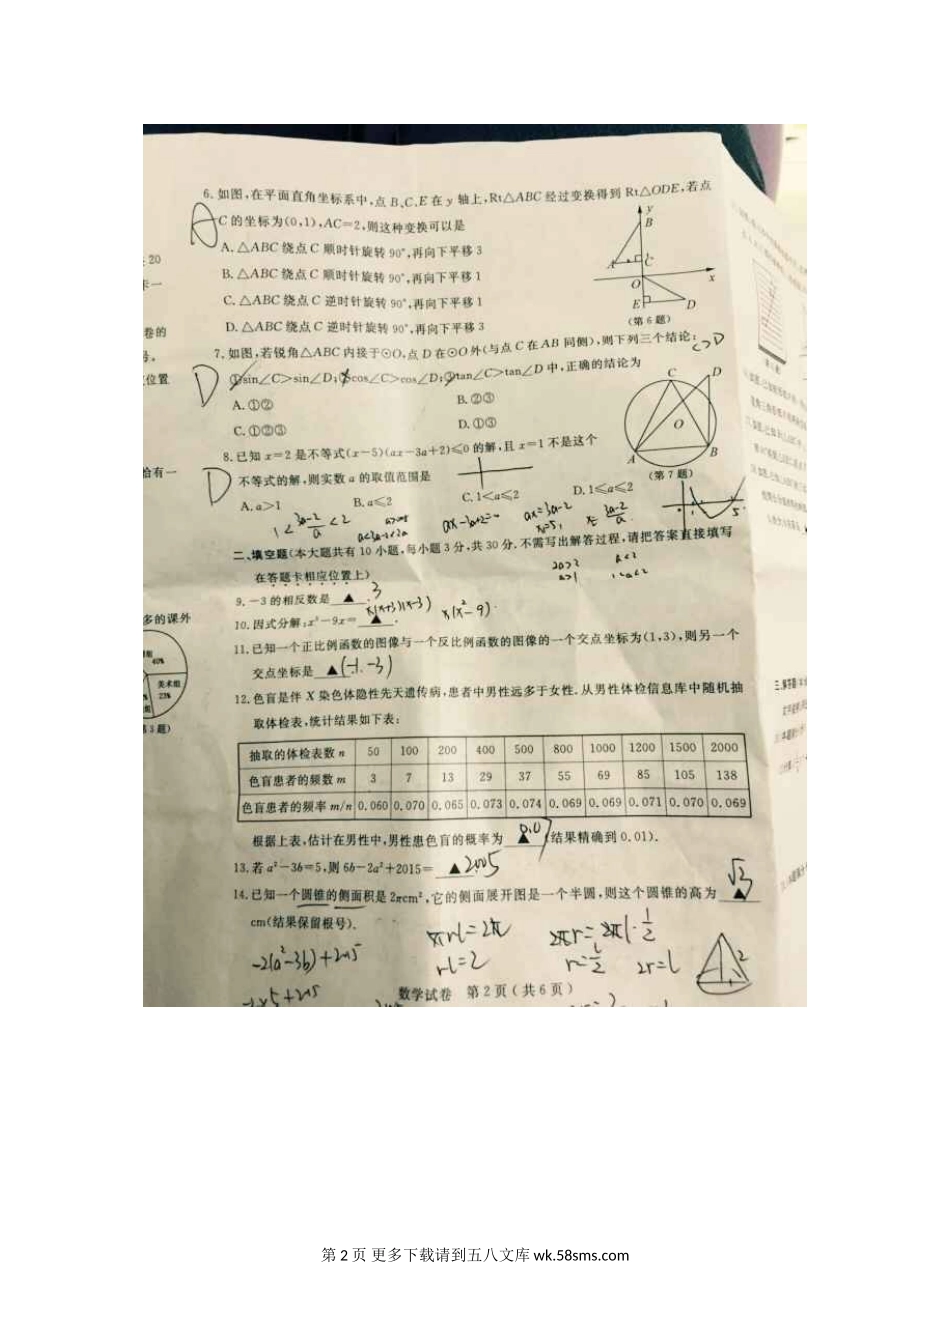 6.如图,在平面直角坐标系中,点 B、C、E 在 y 轴上,Rt△ABC 经过变换得到 Rt△ODE,若点
C 的坐标为(0,1),AC=2,则这种变换可以是
A
A.△ABC 绕点 C 顺时针旋转 90°,再向下平移 3
B.△ABC 绕点 C 顺时针旋转 90°,再向下平移 1
C.△ABC 绕点 C 逆时针旋转 90°,再向下平移 1
D.△ABC 绕点 C 逆时针旋转 90°,再向下平移 3
y
B
A
C
O
x
E
D
(第 6 题)
7.如图,若锐角△ABC 内接于⊙O,点 D 在⊙O 外(与点 C 在 AB 同侧),则下列三个结论:
C>D
D
①sin∠C>sin∠D;②cos∠C>cos∠D;③tan∠C>tan∠D 中,正确的结论为
A.①②
B.②③
C.①②③
D.①③
C
D
O
A
B
(第 7 题)
8.已知 x=2 是不等式(x-5)(ax-3a+2)≤0 的解,且 x=1 不是这个
D
不等式的解,则实数 a 的取值范围是
A.a>1
B.a≤2
C.1<a≤2
D.1≤a≤2
1<(3a-2)/a<2
a<3a-2<2a
ax-3a+2=0
ax=3a-2
x=5,
x=(3a-2)/a
1
5
二、填空题(本大题共有 10 小题,每小题 3 分,共 30 分.不需写出解答过程,请把答案直接填写
在答题卡相应位置上)
2a>2
a<2
a>1
1<a<2
9.-3 的相反数是 ▲ . 3
10.因式分解:x³-9x= ▲ . x(x+3)(x-3) x(x²-9)
11.已知一个正比例函数的图像与一个反比例函数的图像的一个交点坐标为(1,3),则另一个
交点坐标是 ▲ (-1.-3)
12.色盲是伴 X 染色体隐性先天遗传病,患者中男性远多于女性.从男性体检信息库中随机抽
取体检表,统计结果如下表:
抽取的体检表数 n 50 100 200 400 500 800 1000 1200 1500 2000
色盲患者的频数 m 3 7 13 29 37 55 69 85 105 138
色盲患者的频率 m/n 0.060 0.070 0.065 0.073 0.074 0.069 0.069 0.071 0.070 0.069
根据上表,估计在男性中,男性患色盲的概率为 ▲ 0.07 (结果精确到 0.01).
13.若 a²-3b=5,则 6b-2a²+2015= ▲ 2005
14.已知一个圆锥的侧面积是 2πcm²,它的侧面展开图是一个半圆,则这个圆锥的高为 ▲ √3
cm(结果保留根号).
πrl=2π
2πr=2πl·1/2
-2(a²-3b)+2015
rl=2
r=l/2
2r=l
2
数学试卷 第 2 页(共 6 页)
20
卷的
号。
位置
恰有一
多的课外
40%
美术组
23%
第 3 题)
第 2 页 更多下载请到五八文库 wk.58sms.com